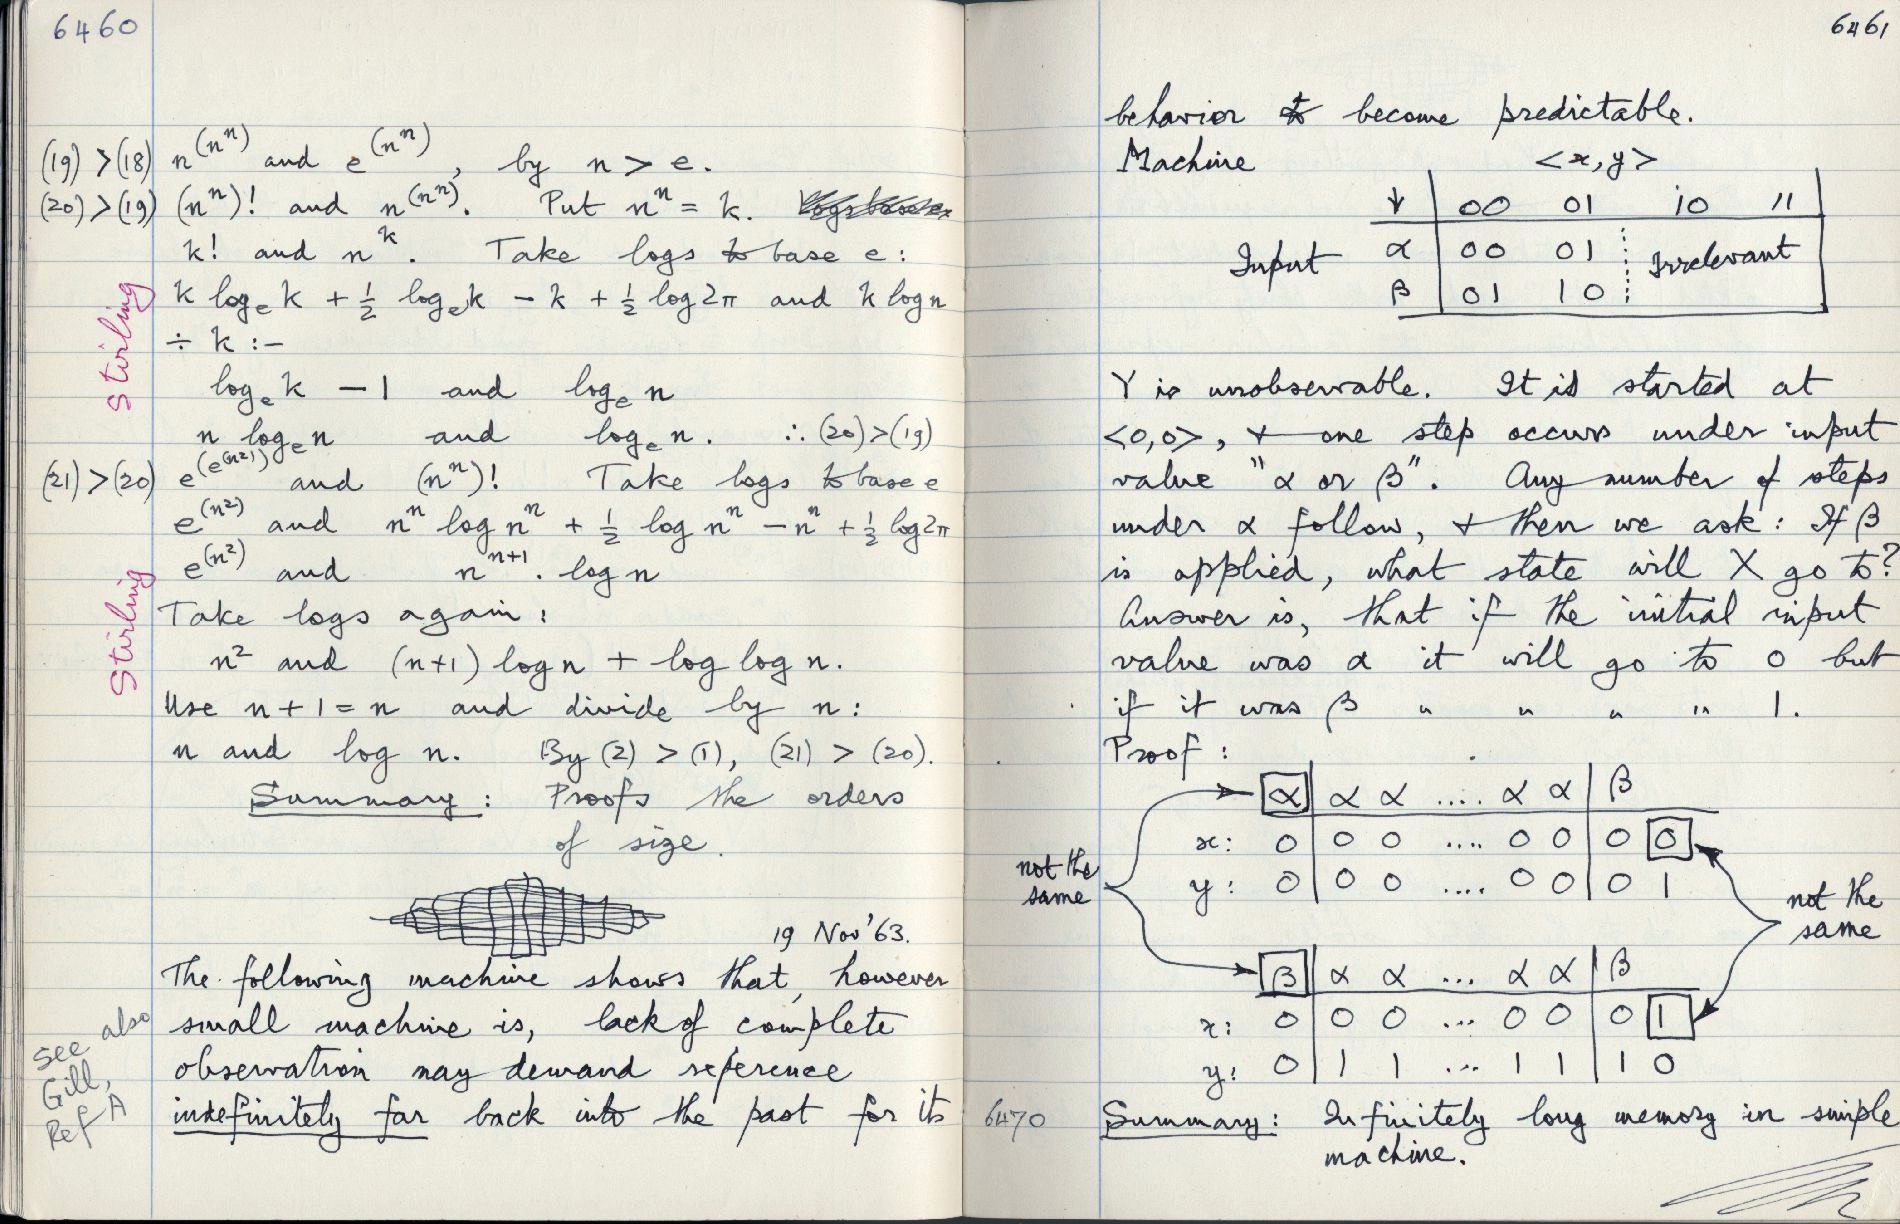 6460
(19) > (18) n^(n^n) and e^(n^n), by n > e.
(20) > (19) (n^n)! and n^(n^n). Put n^n = k.
k! and n^k. Take logs to base e:
k log_e k + ½ log_e k − k + ½ log 2π and k log n
÷ k :−
log_e k − 1 and log_e n
Stirling
n log_e n and log_e n. ∴ (20) > (19)
(21) > (20) e^(e^(n²)) and (n^n)! Take logs to base e
e^(n²) and n^n log n^n + ½ log n^n − n^n + ½ log 2π
e^(n²) and n^(n+1) . log n
Stirling
Take logs again:
n² and (n+1) log n + log log n.
Use n+1 = n and divide by n:
n and log n. By (2) > (1), (21) > (20).
Summary: Proofs the orders
of size.
19 Nov '63.
The following machine shows that, however
small machine is, lack of complete
observation may demand reference
indefinitely far back into the past for its
see also
Gill,
Ref A
6461
behavior to become predictable.
Machine <x, y>
↓ 00 01 10 11
Input α 00 01 Irrelevant
β 01 10
Y is unobservable. It is started at
<0,0>, & one step occurs under input
value "α or β". Any number of steps
under α follow, & then we ask: If β
is applied, what state will X go to?
Answer is, that if the initial input
value was α it will go to 0 but
if it was β " " " " 1.
Proof:
α α α .... α α β
x: 0 0 0 .... 0 0 0 0
y: 0 0 0 .... 0 0 0 1
not the
same
not the
same
β α α ... α α β
x: 0 0 0 ... 0 0 0 1
y: 0 1 1 ... 1 1 1 0
6470
Summary: Infinitely long memory in simple
machine.